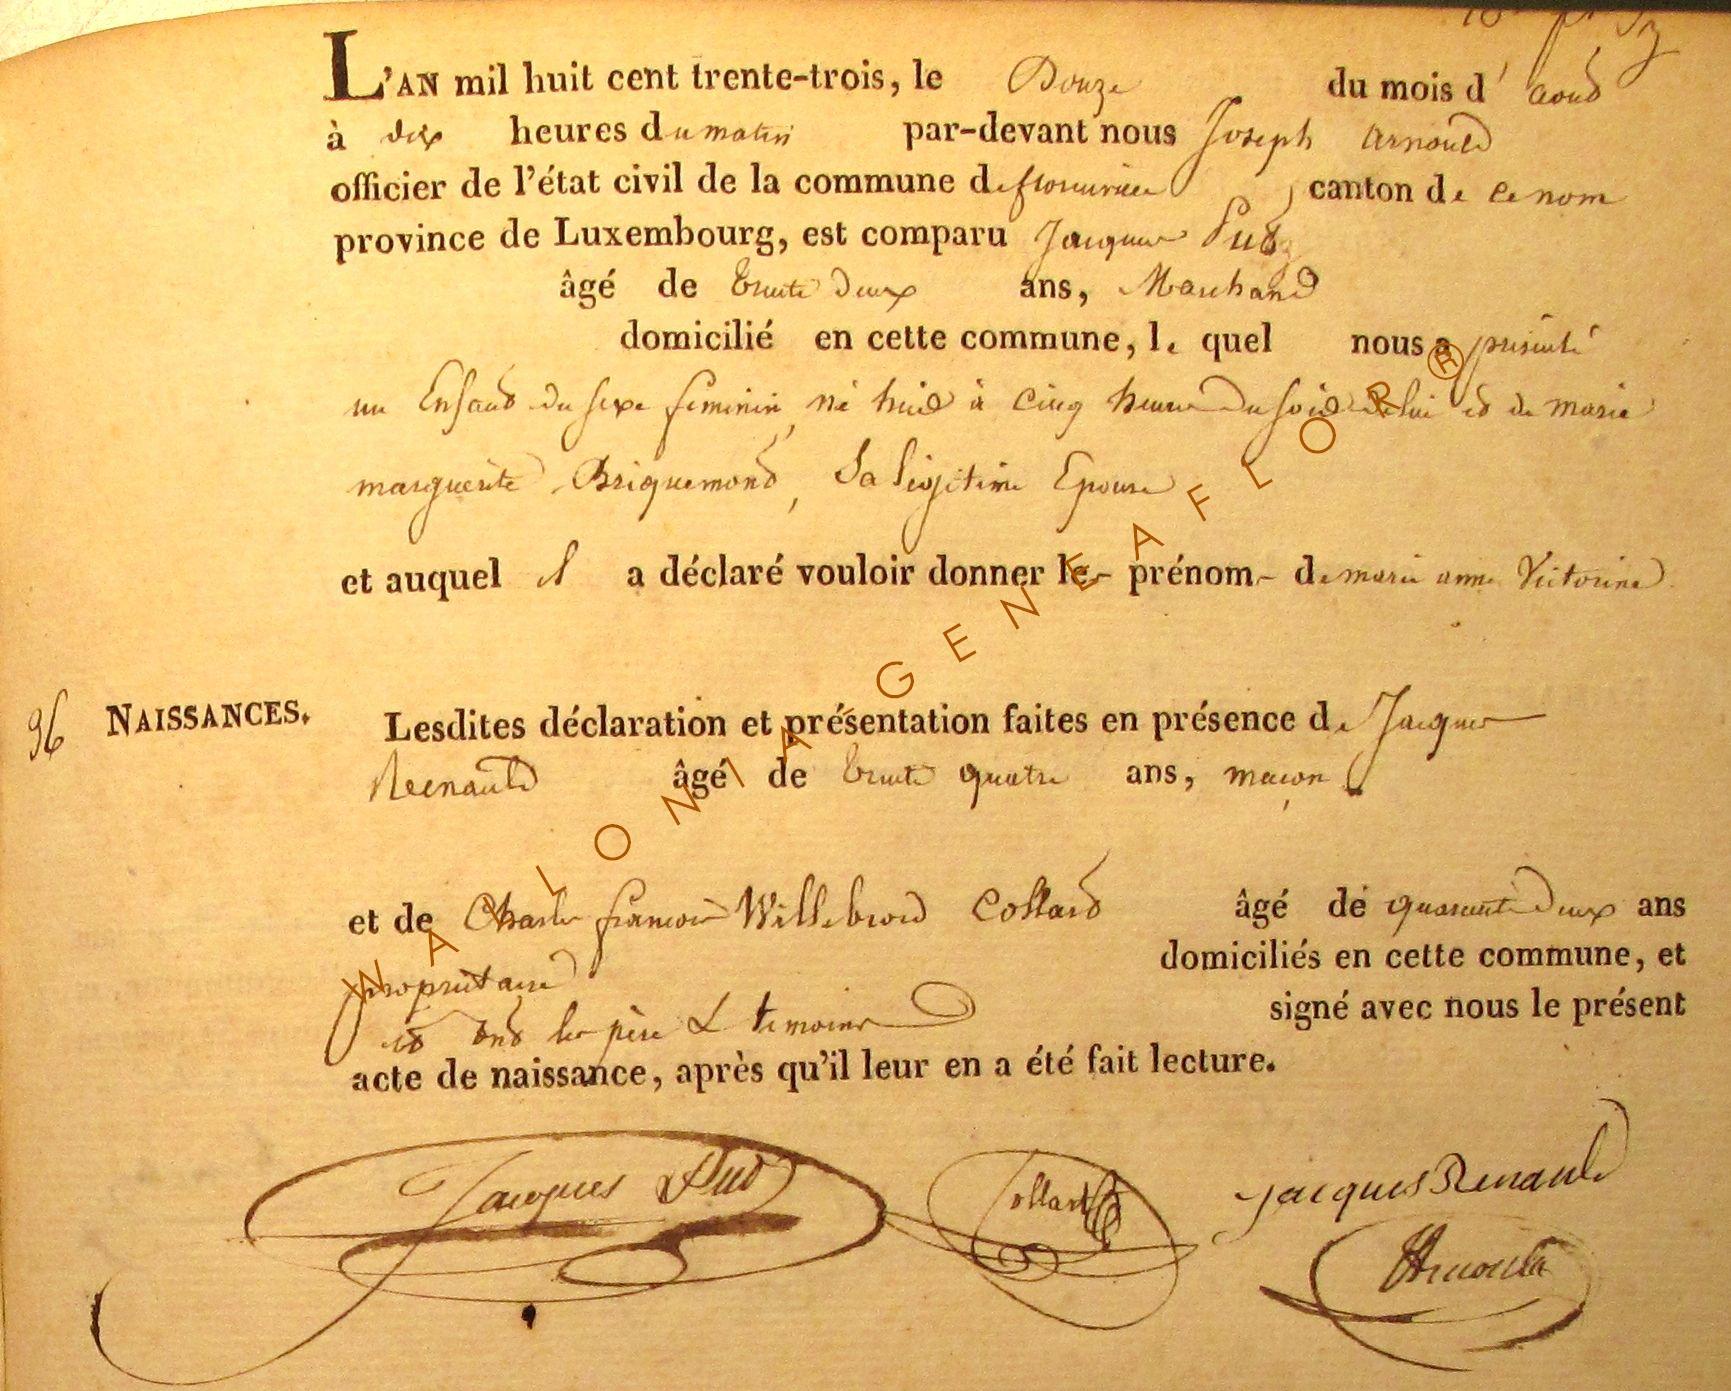 L'AN mil huit cent trente-trois, le Douze du mois d' aout
à dix heures du matin par-devant nous Joseph Arnould
officier de l'état civil de la commune de florenville, canton de ce nom
province de Luxembourg, est comparu Jacques
âgé de trente deux ans, Marchand
domicilié en cette commune, le quel nous a présenté
un Enfant du sexe feminin, né hier à cinq heures du soir de lui et de marie
marguerite Briquemont, Sa légitime Epouse
et auquel il a déclaré vouloir donner les prénom de marie anne Victorine
96 NAISSANCES. Lesdites déclaration et présentation faites en présence de Jacques
Renauld âgé de trente quatre ans, maçon
et de Charles françois Willebrord Collard âgé de quarante deux ans
propriétaire domiciliés en cette commune, et
et ont les père & temoins signé avec nous le présent
acte de naissance, après qu'il leur en a été fait lecture.
Jacques Collard Jacques Renauld
Arnould
WALONIA GENEAFLOR ®